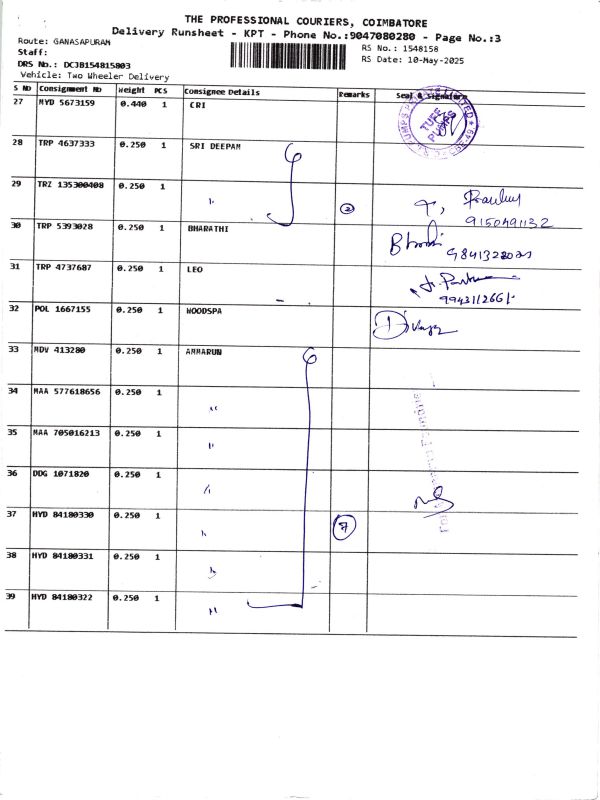 THE PROFESSIONAL COURIERS, COIMBATORE
Delivery Runsheet - KPT - Phone No.:9047080280 - Page No.:3
Route: GANASAPURAM
RS No.: 1548158
Staff:
RS Date: 10-May-2025
DRS No.: DCJB154815803
Vehicle: Two Wheeler Delivery
S NO Consignment No Weight PCS Consignee Details Remarks Seal & Signature
27 MYD 5673159 0.440 1 CRI
TUFF PUMPS
28 TRP 4637333 0.250 1 SRI DEEPAM
29 TRZ 135300408 0.250 1 " 2
9150491132
30 TRP 5393028 0.250 1 BHARATHI
9841322021
31 TRP 4737687 0.250 1 LEO
32 POL 1667155 0.250 1 WOODSPA
33 MDV 413280 0.250 1 AMMARUN
34 MAA 577618656 0.250 1 "
35 MAA 705016213 0.250 1 "
36 DDG 1071820 0.250 1 "
37 HYD 84180330 0.250 1 " 7
38 HYD 84180331 0.250 1 "
39 HYD 84180322 0.250 1 "